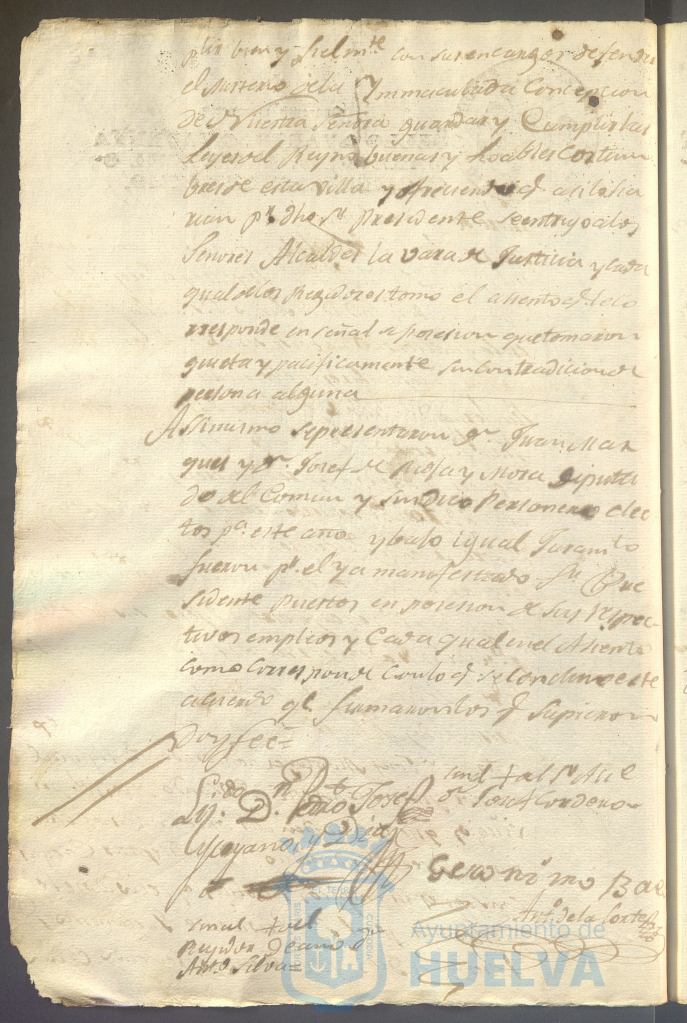 plir bien y fielmte con sus encargos defender
el Misterio de la Ymmaculada Concepcion
de Nuestra Señora guardar y Cumplir las
Leyes del Reyno buenas y Loables Costum
bres de esta villa y ofreciendo q asi lo ha
rian pr dho Sr Presidente se entrego a los
Señores Alcaldes la vara de Justicia y cada
qual de los Rexidores tomo el asiento q le co
rresponde en señal de posesion que tomaron
quieta y pacificamente sin contradicion de
persona alguna
Assimismo se presentaron Dn Juan Mar
quez y Dn Josef de Mora Diputa
do del Comun y Sindico Personero elec
tos pa este año y bajo igual Juramto
fueron pr el ya manifestado Sr Pre
sidente puestos en posesion de sus respec
tivos empleos y Cada qual en el Asiento
como corresponde Con lo q se concluyo este
acuerdo qe firmaron los q supieron
Doy fee=
señal + del Sr Alce
Lizdo Dn Pedro Josef
Dn Josef Cordero
Moyano y
Geronimo
Anto de la Corte
señal + del
Rejidor Decano Dn
Anto Silva=
Ayuntamiento de
HUELVA